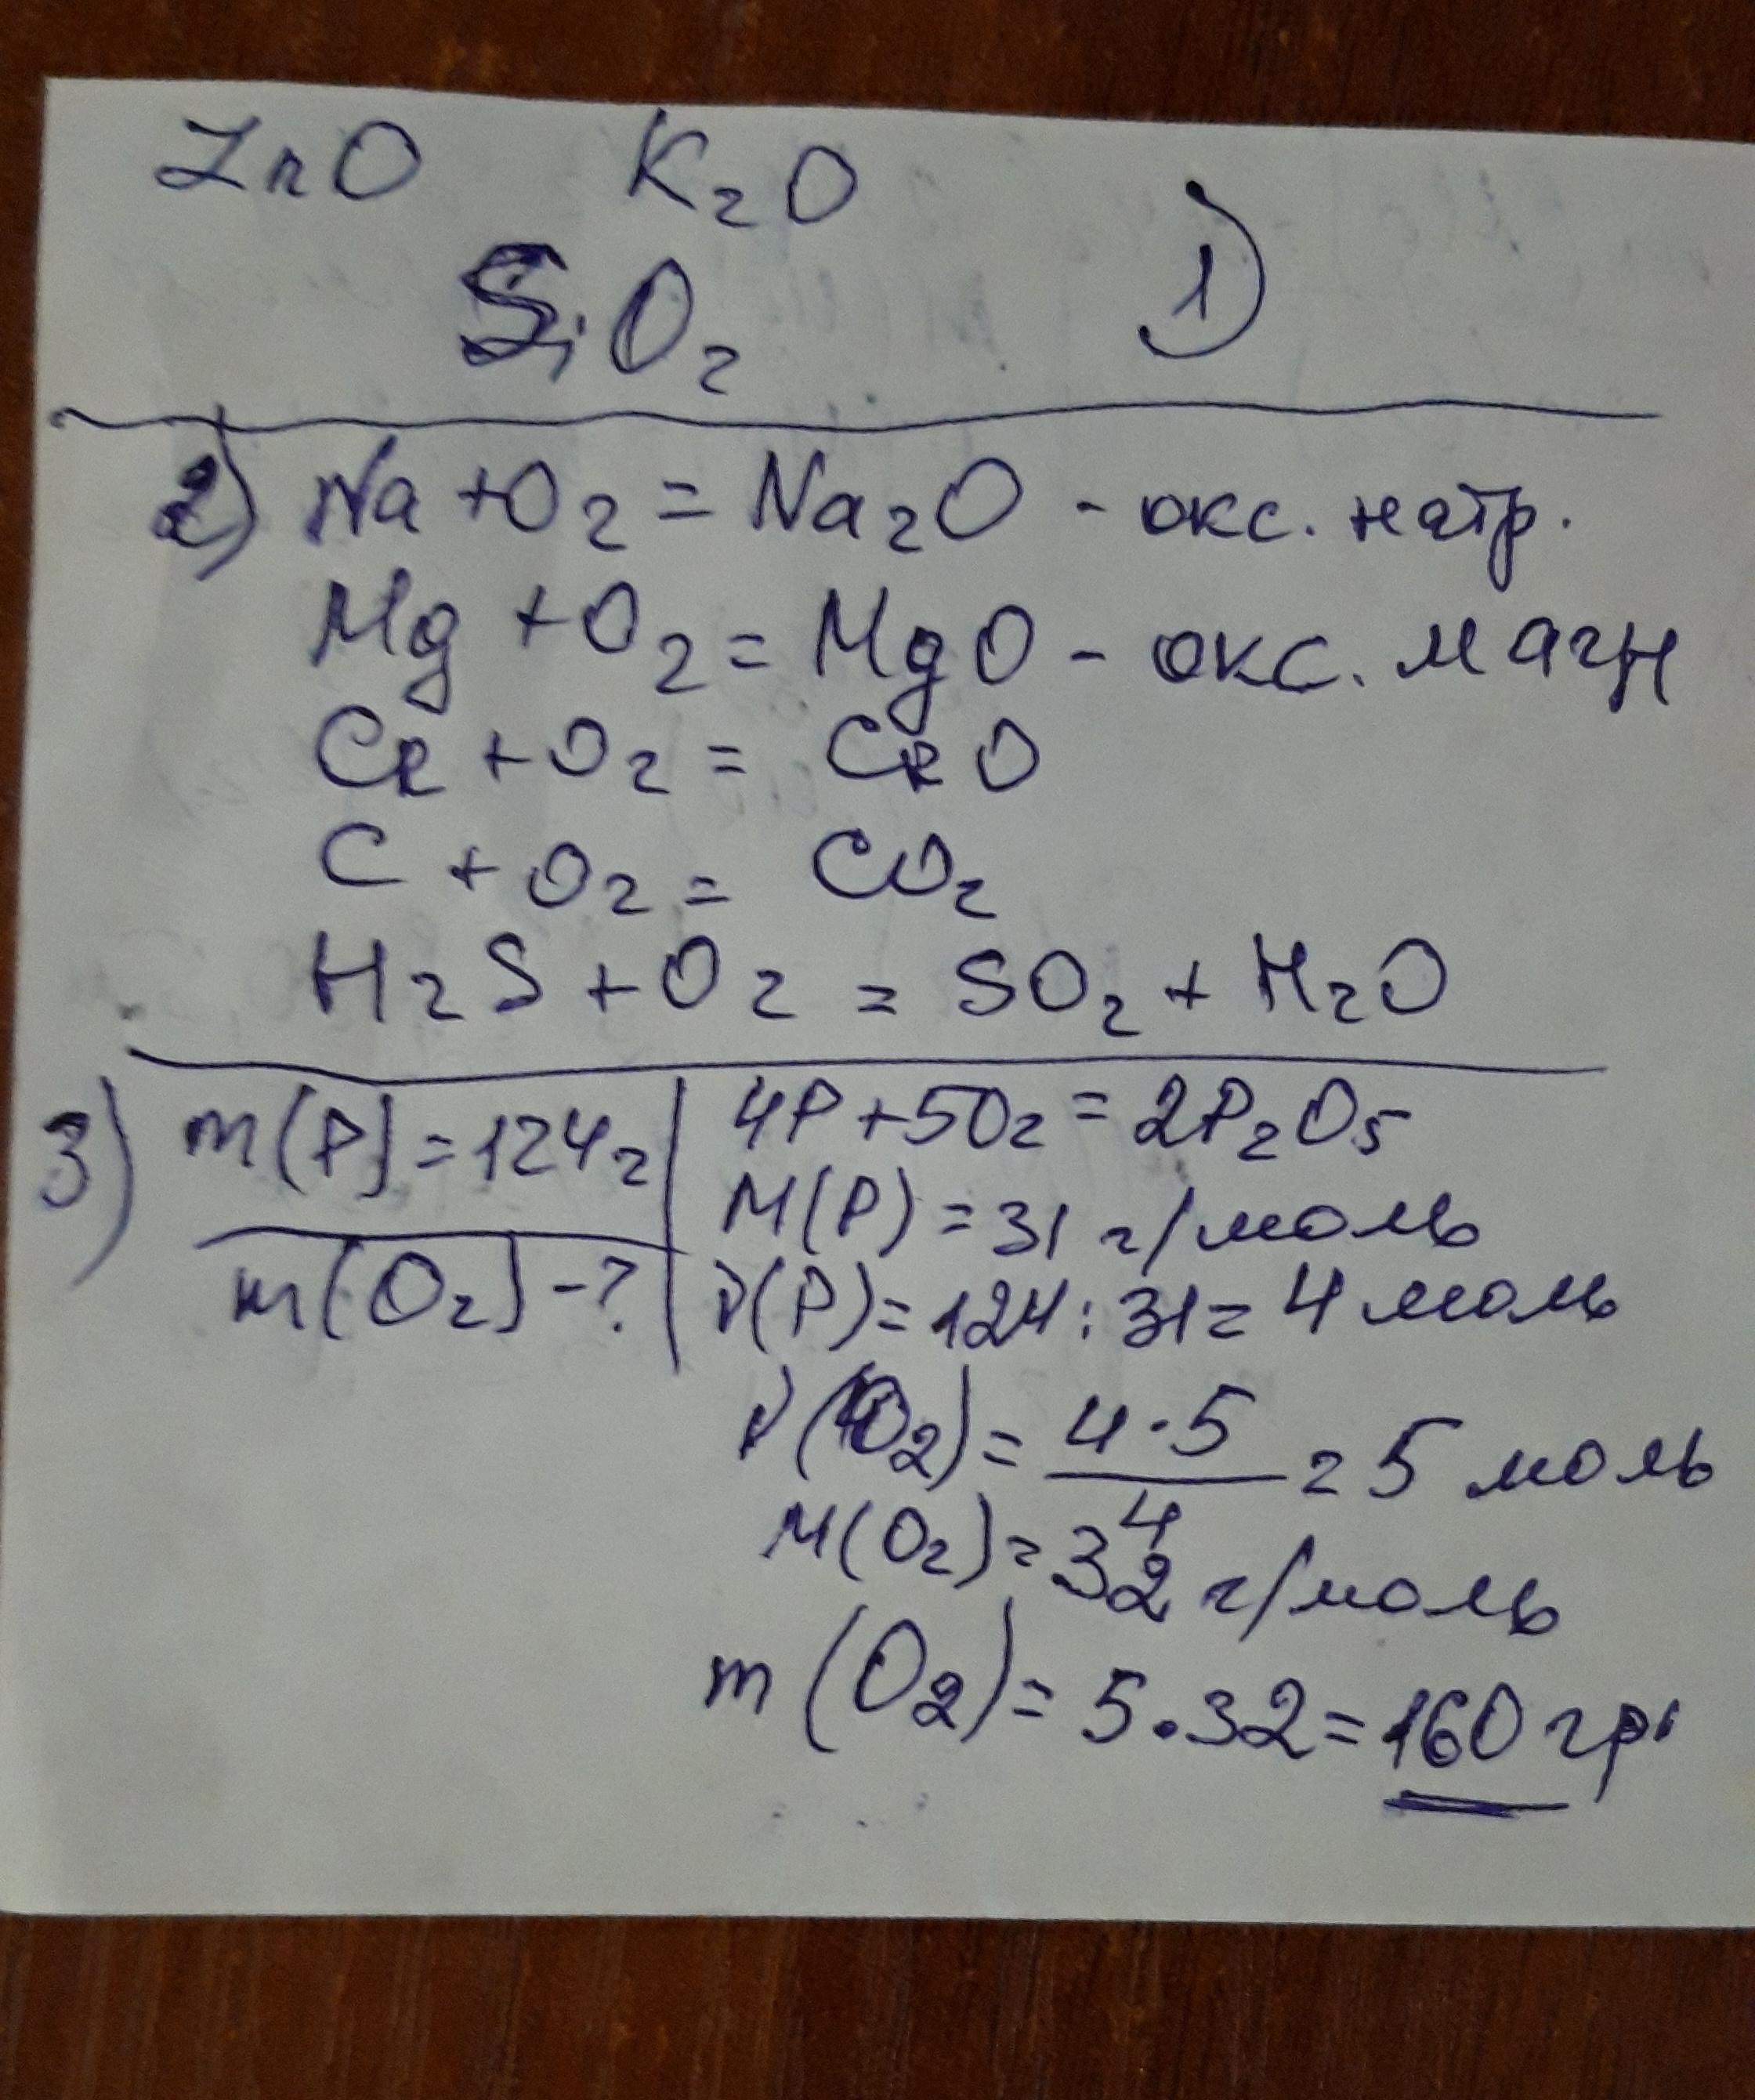 ZnO K₂O
SiO₂ 1)
2) Na + O₂ = Na₂O - окс. натр.
Mg + O₂ = MgO - окс. магн
Cr + O₂ = CrO
C + O₂ = CO₂
H₂S + O₂ = SO₂ + H₂O
3) m(P) = 124 г 4P + 5O₂ = 2P₂O₅
M(P) = 31 г/моль
m(O₂) - ? ν(P) = 124 : 31 = 4 моль
ν(O₂) = 4·5 / 4 = 5 моль
M(O₂) = 32 г/моль
m(O₂) = 5·32 = 160 гр.